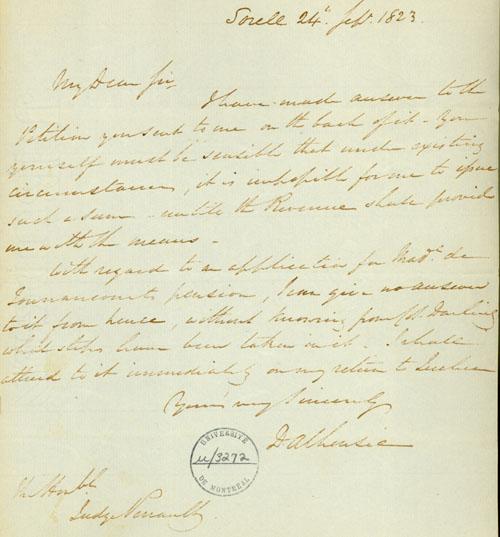 Sorell 24th. Sept. 1823.
My Dear Sir,
I have made answer to the
Petition you sent to me on the back of it - You
yourself must be sensible that under existing
circumstances, it is impossible for me to issue
such a sum - untile the Revenue shall provide
me with the means -
With regard to an application for Madm. de
pension, I can give no answer
to it from hence, without knowing from Col. Darling
what steps have been taken in it. I shall
attend to it immediately on my return to Quebec
Yours very Sincerely
Dalhousie
UNIVERSITÉ
u/3272
DE MONTRÉAL
The Honble
Judge Perrault